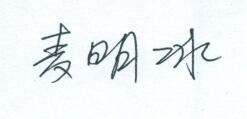 麦明冰